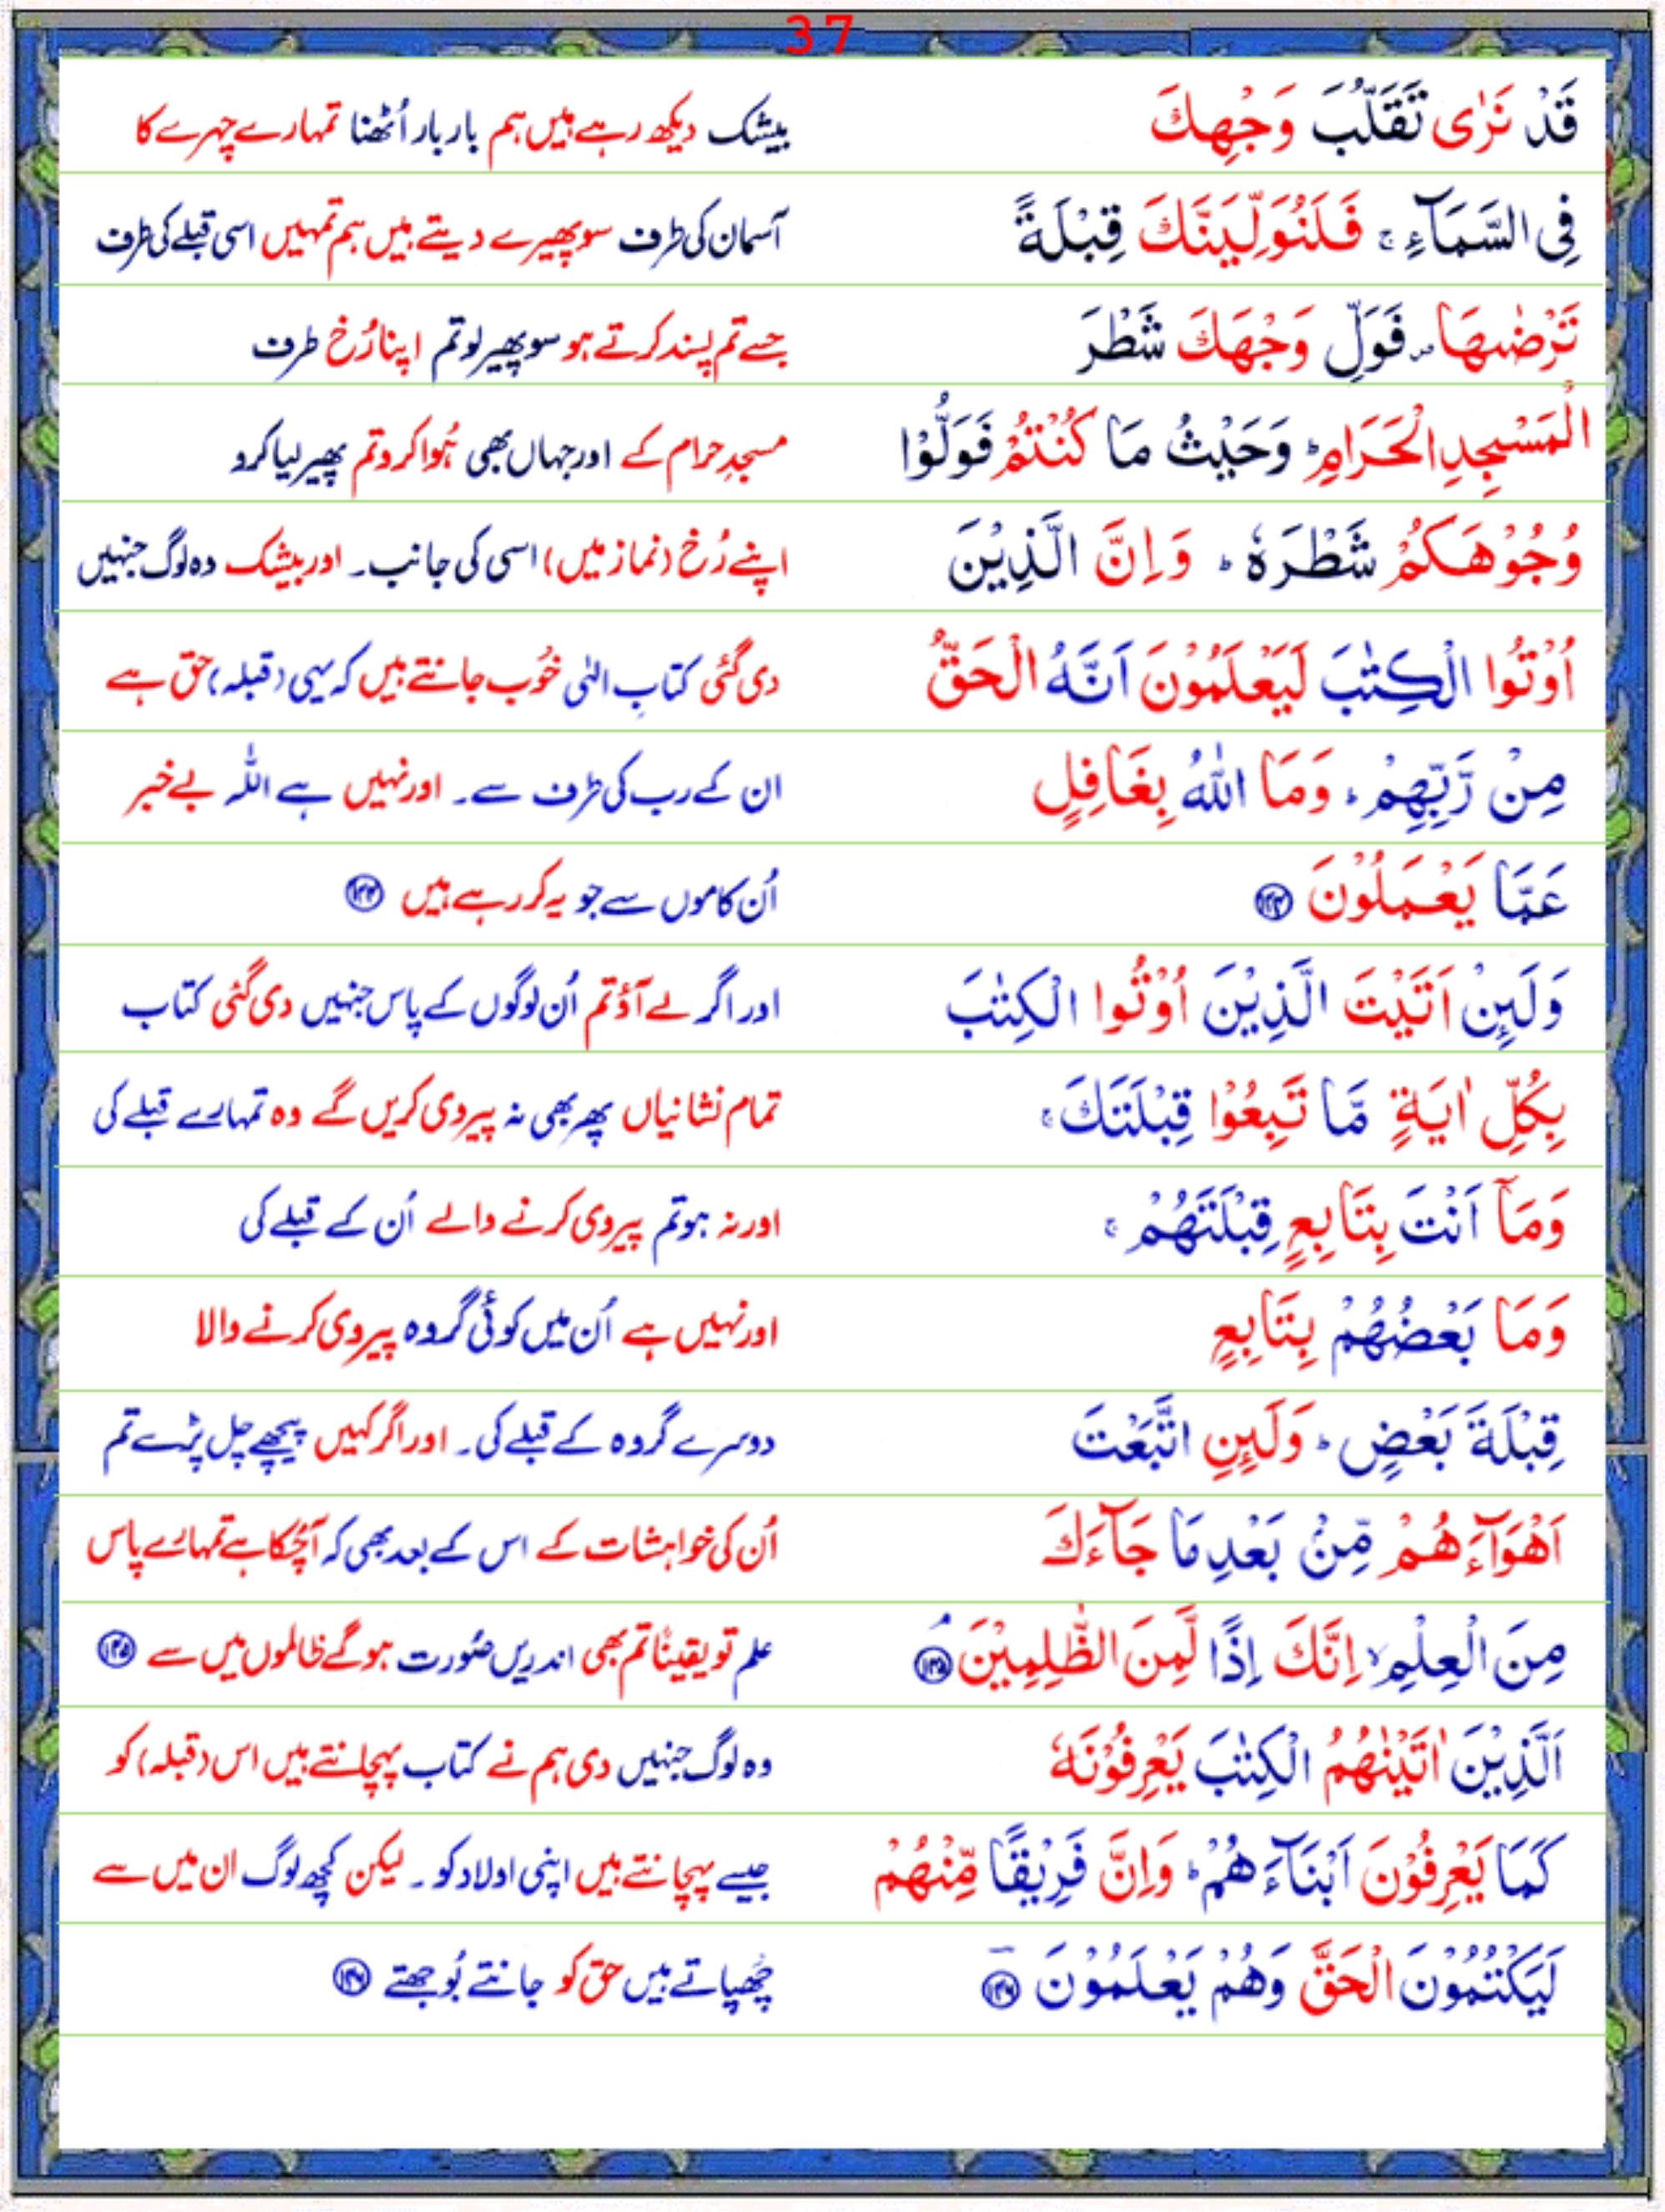 37
قَدْ نَرٰى تَقَلُّبَ وَجْهِكَ بیشک دیکھ رہے ہیں ہم بار بار اُٹھنا تمہارے چہرے کا
فِى السَّمَآءِ ۚ فَلَنُوَلِّيَنَّكَ قِبْلَةً آسمان کی طرف سو پھیرے دیتے ہیں ہم تمہیں اسی قبلے کی طرف
تَرْضٰىهَا ۪ فَوَلِّ وَجْهَكَ شَطْرَ جسے تم پسند کرتے ہو سو پھیر لو تم اپنا رُخ طرف
الْمَسْجِدِ الْحَرَامِ ؕ وَحَيْثُ مَا كُنْتُمْ فَوَلُّوْا مسجدِ حرام کے اور جہاں بھی ہُوا کرو تم پھیر لیا کرو
وُجُوْهَكُمْ شَطْرَهٗ ؕ وَاِنَّ الَّذِيْنَ اپنے رُخ (نماز میں) اسی کی جانب۔ اور بیشک وہ لوگ جنہیں
اُوْتُوا الْكِتٰبَ لَيَعْلَمُوْنَ اَنَّهُ الْحَقُّ دی گئی کتابِ الٰہی خُوب جانتے ہیں کہ یہی (قبلہ) حق ہے
مِنْ رَّبِّهِمْ ؕ وَمَا اللّٰهُ بِغَافِلٍ ان کے رب کی طرف سے۔ اور نہیں ہے اللہ بے خبر
عَمَّا يَعْمَلُوْنَ ۝۱۴۴ اُن کاموں سے جو یہ کر رہے ہیں ۝۱۴۴
وَلَىِٕنْ اَتَيْتَ الَّذِيْنَ اُوْتُوا الْكِتٰبَ اور اگر لے آؤ تم اُن لوگوں کے پاس جنہیں دی گئی کتاب
بِكُلِّ اٰيَةٍ مَّا تَبِعُوْا قِبْلَتَكَ ۚ تمام نشانیاں پھر بھی نہ پیروی کریں گے وہ تمہارے قبلے کی
وَمَآ اَنْتَ بِتَابِعٍ قِبْلَتَهُمْ ۚ اور نہ ہو تم پیروی کرنے والے اُن کے قبلے کی
وَمَا بَعْضُهُمْ بِتَابِعٍ اور نہیں ہے اُن میں کوئی گروہ پیروی کرنے والا
قِبْلَةَ بَعْضٍ ؕ وَلَىِٕنِ اتَّبَعْتَ دوسرے گروہ کے قبلے کی۔ اور اگر کہیں پیچھے چل پڑے تم
اَهْوَآءَهُمْ مِّنْۢ بَعْدِ مَا جَآءَكَ اُن کی خواہشات کے اس کے بعد بھی کہ آچُکا ہے تمہارے پاس
مِنَ الْعِلْمِ ۙ اِنَّكَ اِذًا لَّمِنَ الظّٰلِمِيْنَ ۘ ۝۱۴۵ علم تو یقیناً تم بھی اندریں صُورت ہوگے ظالموں میں سے ۝۱۴۵
اَلَّذِيْنَ اٰتَيْنٰهُمُ الْكِتٰبَ يَعْرِفُوْنَهٗ وہ لوگ جنہیں دی ہم نے کتاب پہچانتے ہیں اس (قبلہ) کو
كَمَا يَعْرِفُوْنَ اَبْنَآءَهُمْ ؕ وَاِنَّ فَرِيْقًا مِّنْهُمْ جیسے پہچانتے ہیں اپنی اولاد کو۔ لیکن کچھ لوگ ان میں سے
لَيَكْتُمُوْنَ الْحَقَّ وَهُمْ يَعْلَمُوْنَ ۝۱۴۶ چُھپاتے ہیں حق کو جانتے بُوجھتے ۝۱۴۶